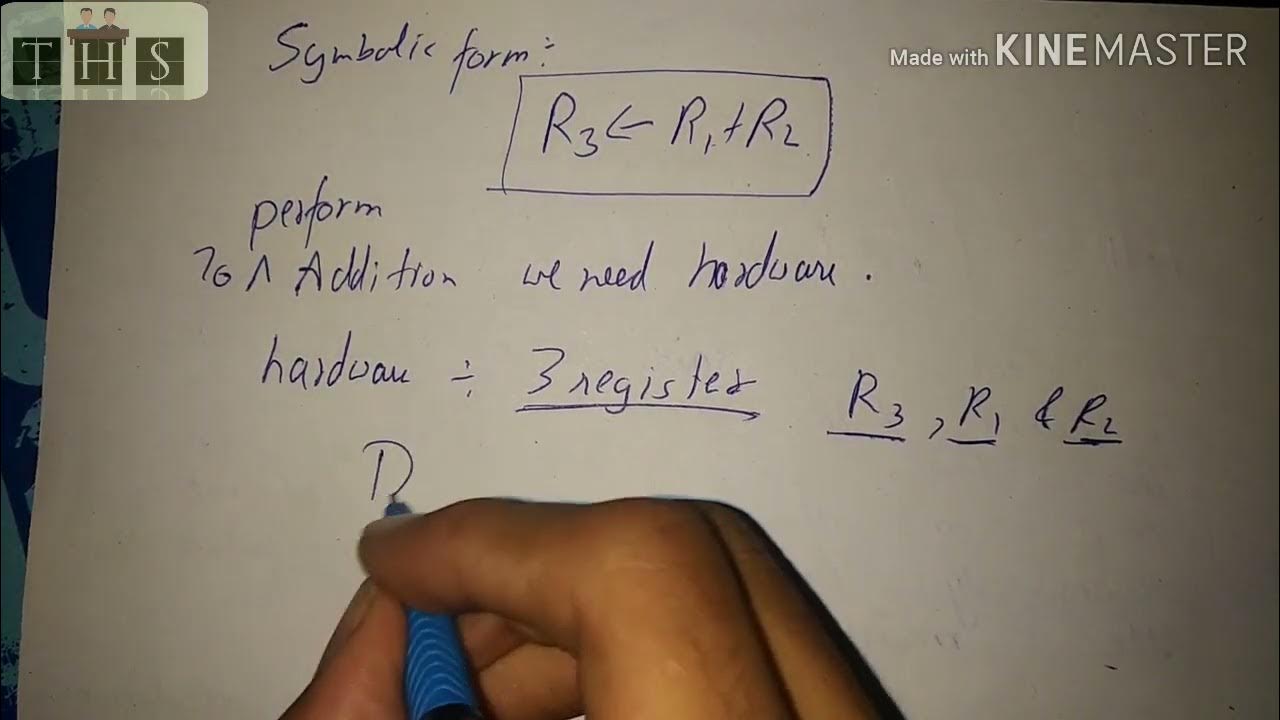 THS
Made with KINEMASTER
Symbolic form:
R3 ← R1 + R2
perform
To ^ Addition we need hardware.
hardware ÷ 3 register R3, R1 & R2
D